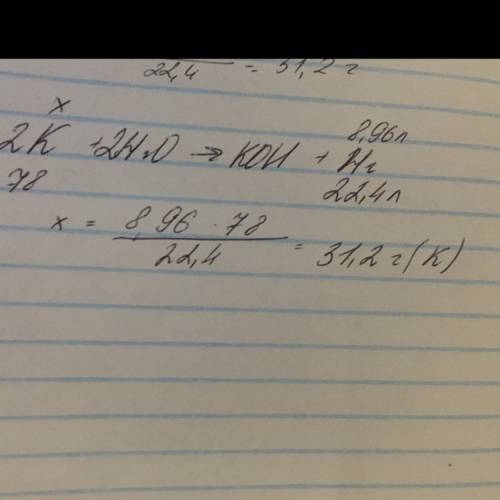 22,4 = 31,2 г
x 8,96л
2K + 2H₂O → KOH + H₂
78 22,4л
x = 8,96 · 78 / 22,4 = 31,2 г (K)